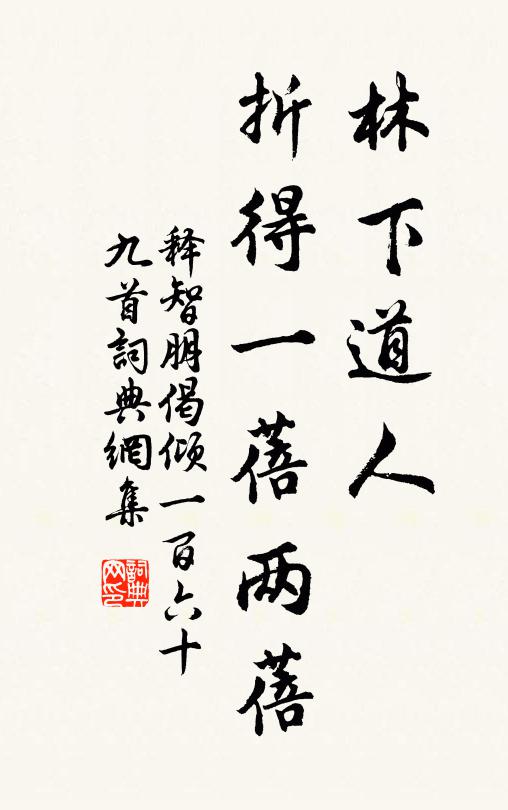 林下道人
折得一蓓两蓓
释智朋偈倾一百六十
九首詞典網集
詞典
网印